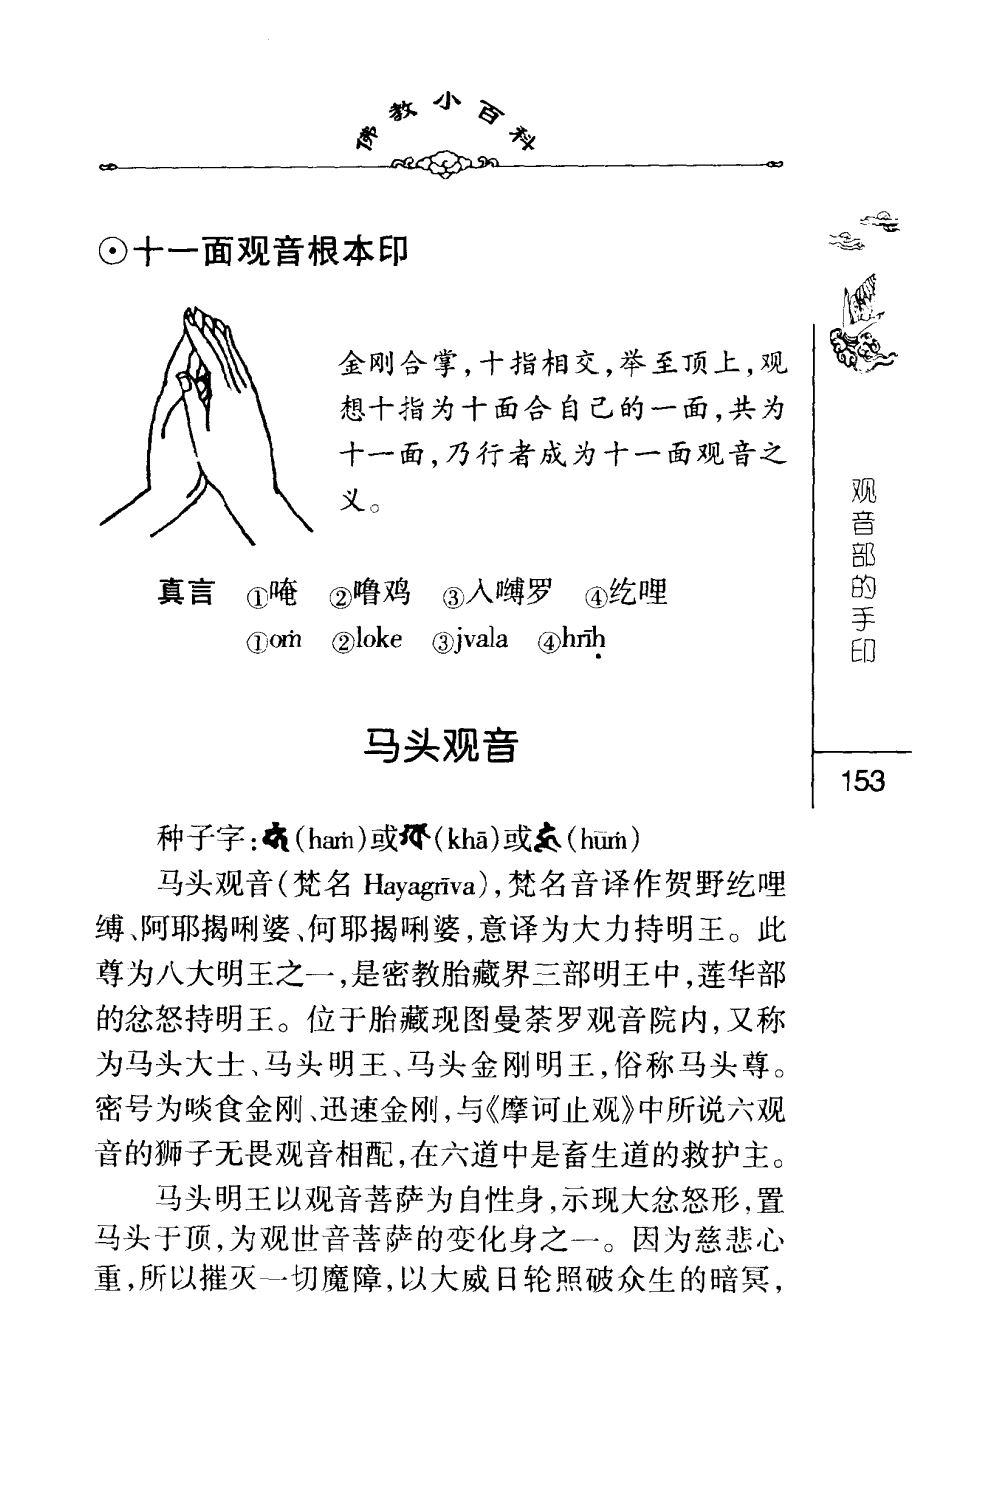 佛教小百科
⊙十一面观音根本印
金刚合掌，十指相交，举至顶上，观
想十指为十面合自己的一面，共为
十一面，乃行者成为十一面观音之
义。
真言 ①唵 ②噜鸡 ③入嚩罗 ④纥哩
①oṁ ②loke ③jvala ④hrīḥ
马头观音
种子字：(haṁ)或(khā)或(hūṁ)
马头观音(梵名 Hayagrīva)，梵名音译作贺野纥哩
缚、阿耶揭唎婆、何耶揭唎婆，意译为大力持明王。此
尊为八大明王之一，是密教胎藏界三部明王中，莲华部
的忿怒持明王。位于胎藏现图曼荼罗观音院内，又称
为马头大士、马头明王、马头金刚明王，俗称马头尊。
密号为啖食金刚、迅速金刚，与《摩诃止观》中所说六观
音的狮子无畏观音相配，在六道中是畜生道的救护主。
马头明王以观音菩萨为自性身，示现大忿怒形，置
马头于顶，为观世音菩萨的变化身之一。因为慈悲心
重，所以摧灭一切魔障，以大威日轮照破众生的暗冥，
观音部的手印
153